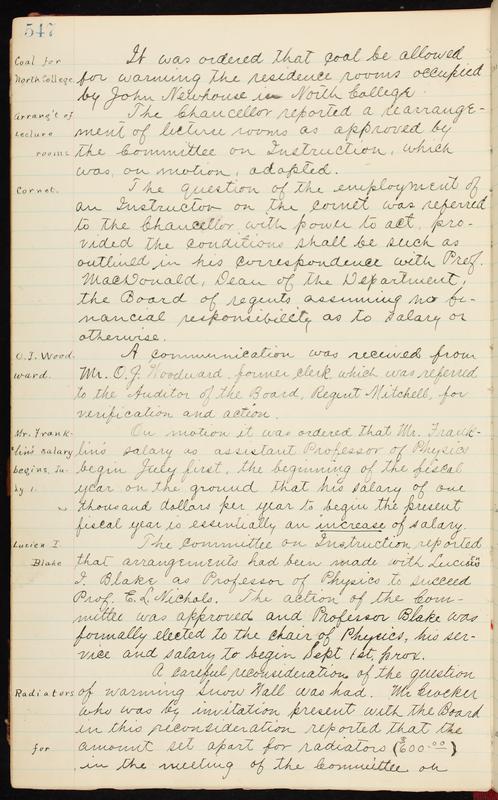 547
Coal for
North College.
It was ordered that coal be allowed
for warming the residence rooms occupied
by John Newhouse in North College.
Arrang't of
Lecture
rooms
The Chancellor reported a rearrange-
ment of lecture rooms as approved by
the Committee on Instruction, which
was, on motion, adopted.
Cornet.
The question of the employment of
an Instructor on the cornet was referred
to the Chancellor with power to act, pro-
vided the conditions shall be such as
outlined in his correspondence with Prof.
MacDonald, Dean of the Department,
the Board of regents assuming no fi-
nancial responsibility as to Salary or
otherwise.
O.J. Wood
ward.
A communication was received from
Mr. O.J. Woodward, former clerk which was referred
to the Auditor of the Board, Regent Mitchell, for
verification and action.
Mr. Frank-
lin's Salary
begins Ju-
ly 1.
On motion it was ordered that Mr. Frank-
lin's salary as assistant Professor of Physics
begin July first, the beginning of the fiscal
year on the ground that his salary of one
thousand dollars per year to begin the present
fiscal year is essentially an increase of salary.
Lucien I
Blake
The committee on Instruction reported
that arrangements had been made with Lucien
I. Blake as Professor of Physics to succeed
Prof. E. L. Nichols. The action of the Com-
mittee was approved and Professor Blake was
formally elected to the chair of Physics, his ser-
vice and salary to begin Sept 1st, prox.
Radiators
for
A careful reconsideration of the question
of warming Snow Hall was had. Mr. Crocker
who was by invitation present with the Board
in this reconsideration reported that the
amount set apart for radiators ($600.00)
in the meeting of the Committee on